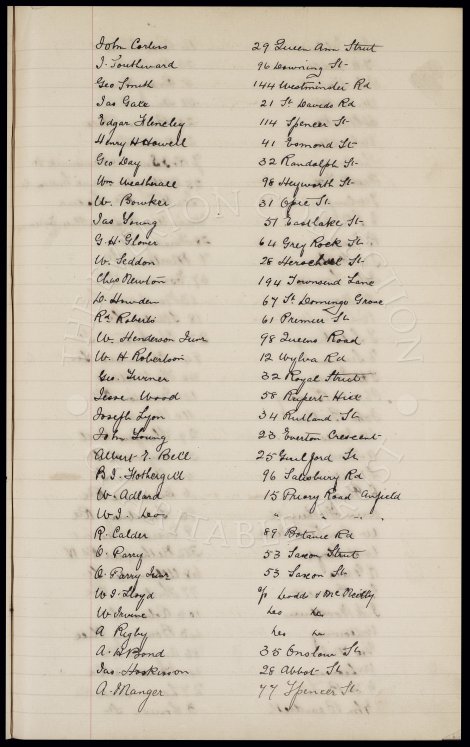 John Corless 29 Queen Ann Street
J. Southward 96 Downing St
Geo Smith 144 Westminster Rd
Jas Gate 21 St Davids Rd
Edgar 114 Spencer St
Henry H Howell 41 Esmond St
Geo Day 32 Randolph St
Wm Weatherall 98 Heyworth St
W. Bowker 31 St
Jas Young 51 Eastlake St
G. H. Glover 64 Grey Rock St
W. Seddon 28 Herschell St
Chas Newton 194 Townsend Lane
D. Howden 67 St Domingo Grove
Rd Roberts 61 Premier St
W. Henderson Junr 98 Queens Road
W. H Robertson 12 Wylva Rd
Geo. Turner 32 Royal Street
Jesse Wood 58 Rupert Hill
Joseph Lyon 34 Rutland St
John Young 23 Everton Crescent
Albert E. Bell 25 Guilford St
B. J. Fothergill 96 Salisbury Rd
W. Adlard 15 Priory Road Anfield
W. J. " " "
R. Calder 89 Botanic Rd
O. Parry 53 Saxon Street
O. Parry Junr 53 Saxon St
W J Lloyd c/o & McReilly
W Irvine
A Rigby
A. B Bond 35 Onslow St
Jas. Hoskisson 28 Abbot St
A. Manger 77 Spencer St